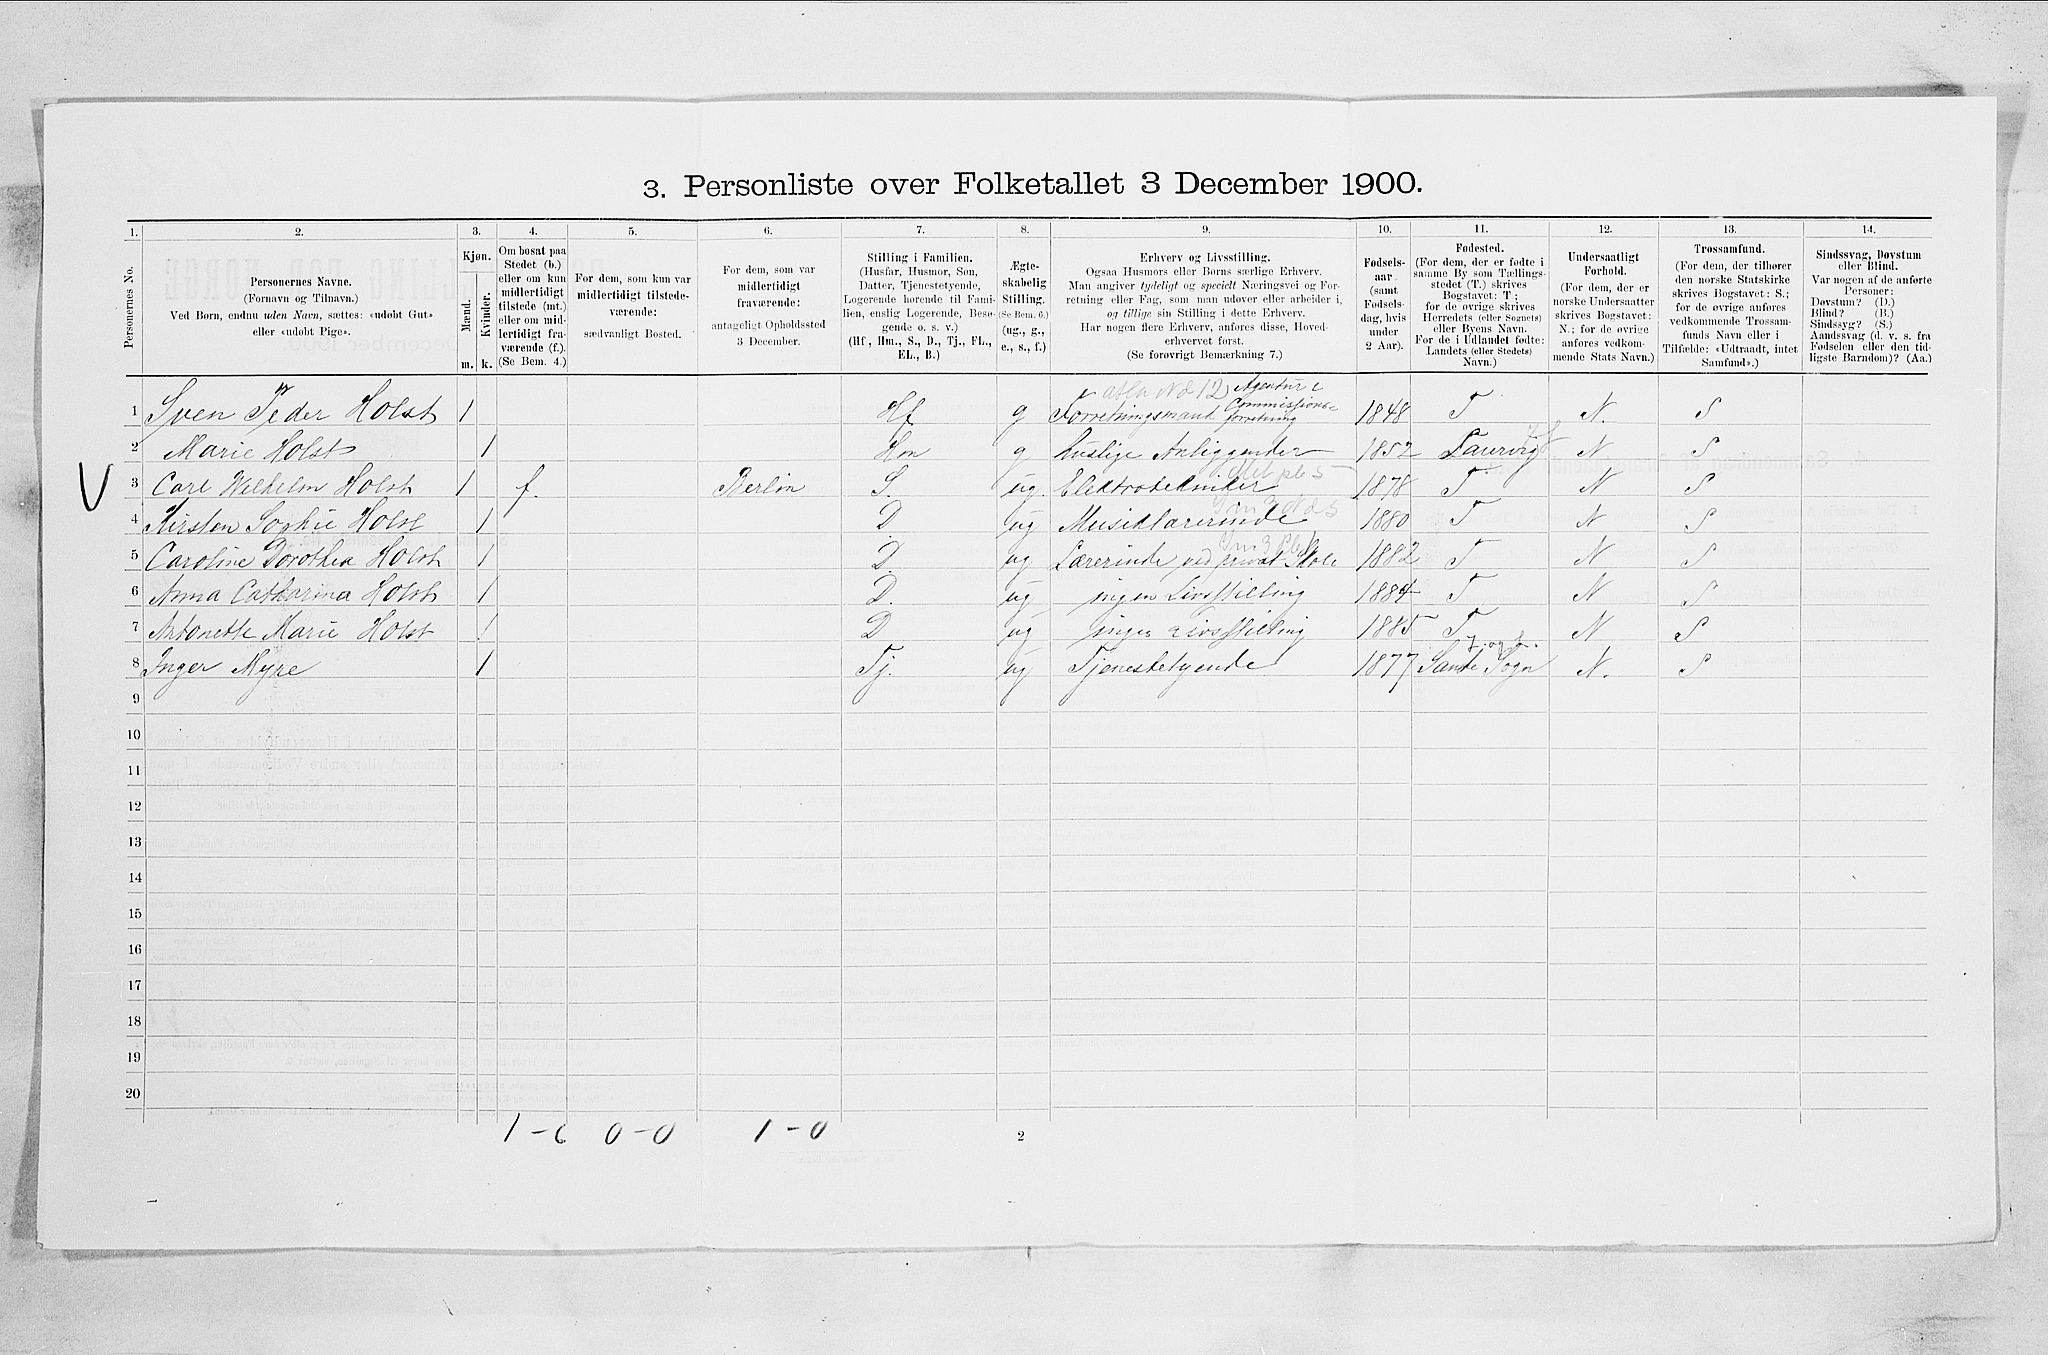 3. Personliste over Folketallet 3 December 1900.
1. 2. 3. 4. 5. 6. 7. 8. 9. 10. 11. 12. 13. 14.
Personernes No.
Personernes Navne.
(Fornavn og Tilnavn.)
Ved Børn, endnu uden Navn, sættes: «udøbt Gut»
eller «udøbt Pige».
Kjøn.
Mænd.
Kvinder.
m. k.
Om bosat paa
Stedet (b.)
eller om kun
midlertidigt
tilstede (mt.)
eller om mid-
lertidigt fra-
værende (f.).
(Se Bem. 4.)
For dem, som kun var
midlertidigt tilstede-
værende:
sædvanligt Bosted.
For dem, som var
midlertidigt
fraværende:
antageligt Opholdssted
3 December.
Stilling i Familien.
(Husfar, Husmor, Søn,
Datter, Tjenestetyende,
Logerende hørende til Fami-
lien, enslig Logerende, Besø-
gende o. s. v.)
(Hf., Hm., S., D., Tj., FL.,
EL., B.)
Ægte-
skabelig
Stilling.
(Se Bem. 6.)
(ug., g.,
e., s., f.)
Erhverv og Livsstilling.
Ogsaa Husmors eller Børns særlige Erhverv.
Man angiver tydeligt og specielt Næringsvei og For-
retning eller Fag, som man udøver eller arbeider i,
og tillige sin Stilling i dette Erhverv.
Har nogen flere Erhverv, anføres disse, Hoved-
erhvervet først.
(Se forøvrigt Bemærkning 7.)
Fødsels-
aar
(samt
Fødsels-
dag, hvis
under
2 Aar).
Fødested.
(For dem, der er fødte i
samme By som Tællings-
stedet (T.) skrives
Bogstavet: T;
for de øvrige skrives
Herredets (eller Sognets)
eller Byens Navn.
For de i Udlandet fødte:
Landets (eller Stedets)
Navn.)
Undersaatligt
Forhold.
(For dem, der er
norske Undersaatter
skrives Bogstavet:
N.; for de øvrige
anføres vedkom-
mende Stats Navn.)
Trossamfund.
(For dem, der tilhører
den norske Statskirke
skrives Bogstavet: S.;
for de øvrige anføres
vedkommende Trossam-
funds Navn eller i
Tilfælde: «Udtraadt, intet
Samfund».)
Sindssvag, Døvstum
eller Blind.
Var nogen af de anførte
Personer:
Døvstum? (D.)
Blind? (B.)
Sindssyg? (S.)
Aandssvag (d. v. s. fra
Fødselen eller den tid-
ligste Barndom)? (Aa.)
1 Sven Peder Holst 1 Hf g Forretningsmand Agentur & Commissions-forretning 1848 T N. S
2 Marie Holst 1 Hm g huslige Anliggender 1852 Laurvig N S
V 3 Carl Wilhelm Holst 1 f. Berlin S. ug. Elektrotekniker 1878 T N S
4 Kirsten Sophie Holst 1 D ug Musiklærerinde 1880 T N S
5 Caroline Dorothea Holst 1 D. ug Lærerinde ved privat Skole 1882 T N S
6 Anna Catharina Holst 1 D. ug ingen Livsstilling 1884 T N S
7 Antonette Marie Holst 1 D ug ingen Livsstilling 1885 T N S
8 Inger Myre 1 Tj. ug Tjenestetyende 1877 Sande Sogn N. S
9
10
11
12
13
14
15
16
17
18
19
20
1-6 0-0 1-0
2